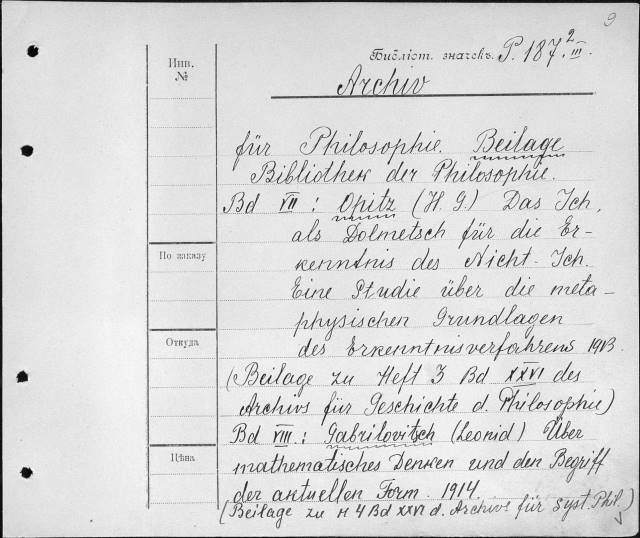 9
Библіот. значекъ. P. 187. 2 III.
Инв.
№
Archiv
für Philosophie. Beilage
Bibliothek der Philosophie.
Bd VII : Opitz (H. G.) Das Ich,
als Dolmetsch für die Er-
kenntnis des Nicht-Ich.
По заказу
Eine Studie über die meta-
physischen Grundlagen
Откуда
des Erkenntnisverfahrens 1913.
(Beilage zu Heft 3 Bd XXVI des
Archivs für Geschichte d. Philosophie)
Bd VIII.: Gabrilovitsch (Leonid) Über
Цѣна
mathematisches Denken und den Begriff
der aktuellen Form. 1914.
(Beilage zu H 4 Bd XXVI d. Archivs für syst. Phil.)